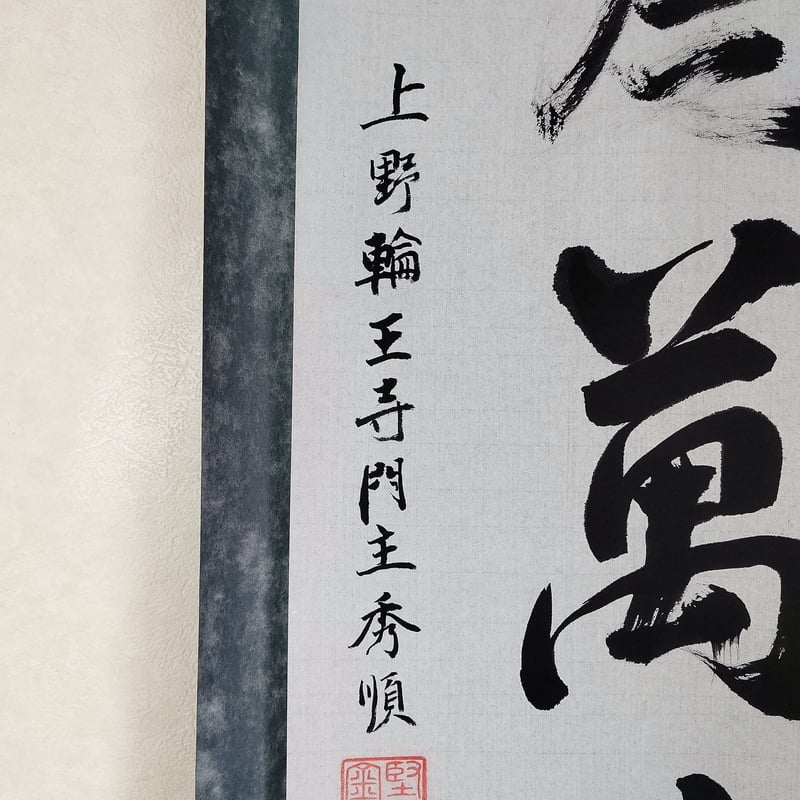 萬
上野輪王寺門主秀順
堅金